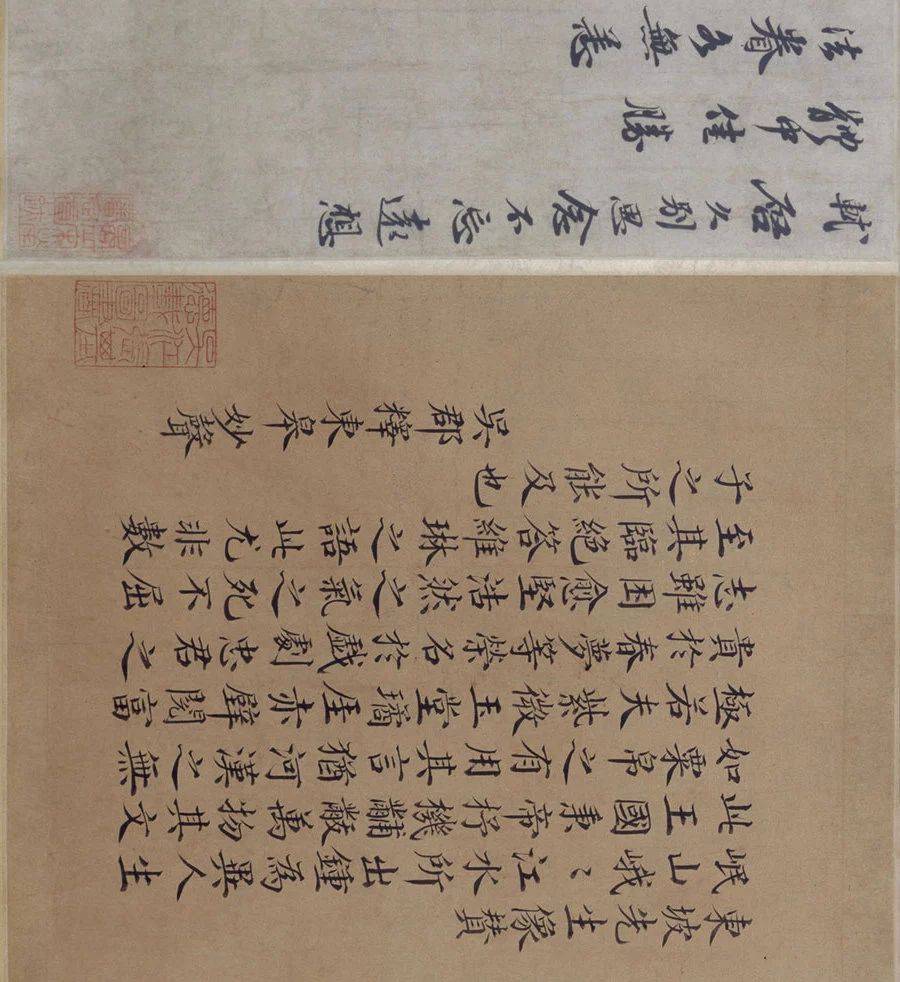 東坡先生像贊
岷山峨〻江水所出鍾為異人生
此王國秉帝杼機黼黻萬物其文
如粟帛之有用其言猶河漢之無
極若夫紫微玉堂璚厓赤壁閱富
貴於春夢等榮名於戲劇忠君之
志雖困愈堅浩然之氣之死不屈
至其臨絕答維琳之語此尤非數
子之所能及也
吳郡釋東皋妙聲
軾啓久別思念不忘遠想
體中佳勝
法眷各無恙